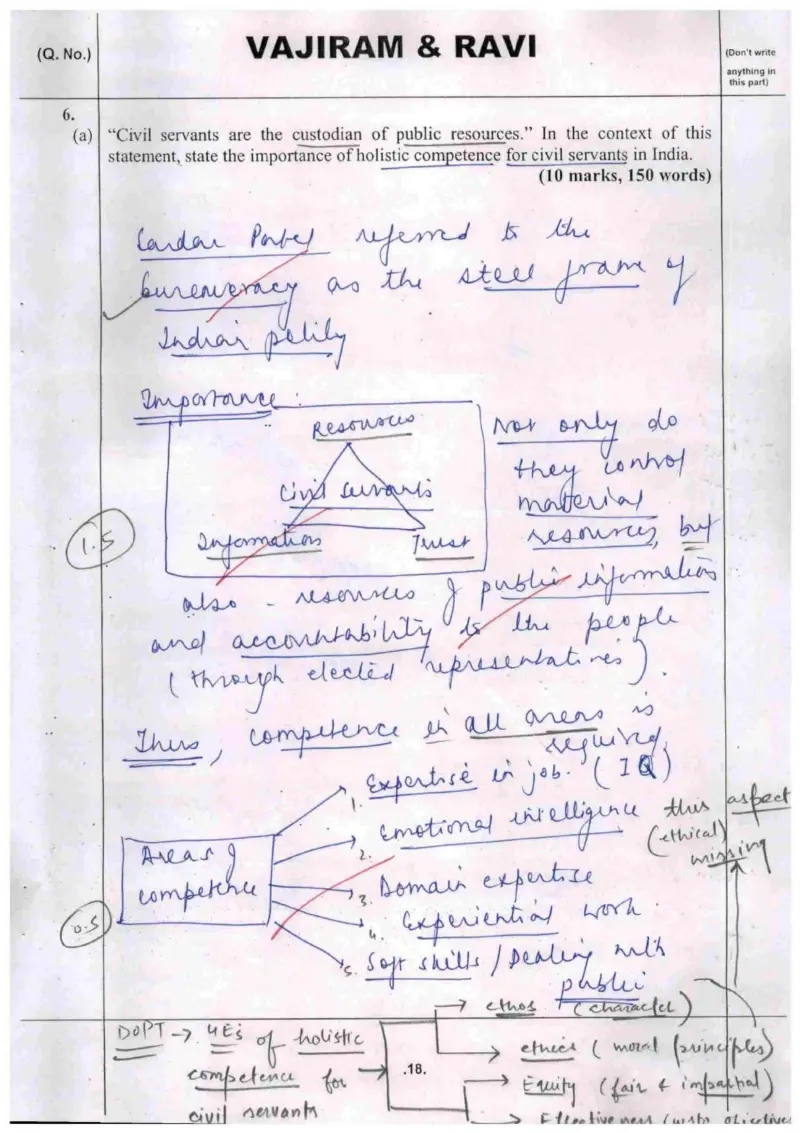 (Q. No.)
VAJIRAM & RAVI
(Don't write
anything in
this part)
6.
(a) "Civil servants are the custodian of public resources." In the context of this
statement, state the importance of holistic competence for civil servants in India.
(10 marks, 150 words)
Sardar Patel referred to the
bureaucracy as the steel frame of
Indian polity
Importance :
Resources
Civil servants
Information
Trust
Not only do
they control
material
resources, but
1.5
also - resources of public information
and accountability to the people
(through elected representatives).
Thus, competence in all areas is
required
Areas of
competence
1. Expertise in job. (IQ)
2. Emotional intelligence
3. Domain expertise
4. Experiential work
5. Soft skills / Dealing with
public
this aspect
(ethical)
missing
0.5
DOPT → 4Es of holistic
competence for
civil servants
ethos (character)
ethics (moral principles)
Equity (fair & impartial)
Effectiveness
.18.